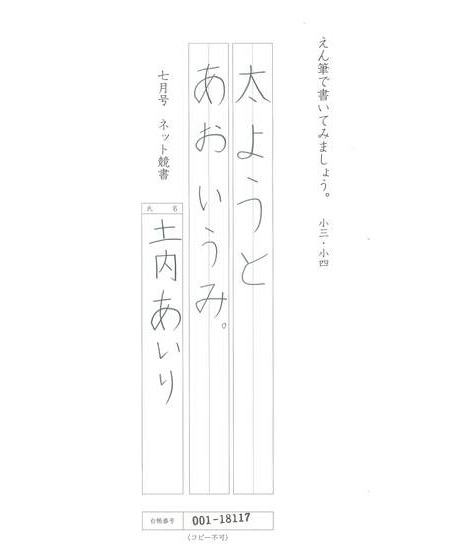 えん筆で書いてみましょう。 小三・小四
太ようと
あおいうみ。
七月号 ネット競書
氏名
土内あいり
台帳番号 001-18117
(コピー不可)